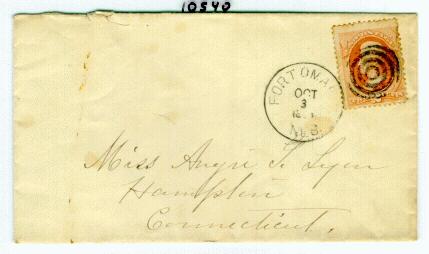 10540
FORT OMA
OCT
3
NEB.
Miss Angie S. Lyon
Hampton
Connecticut.